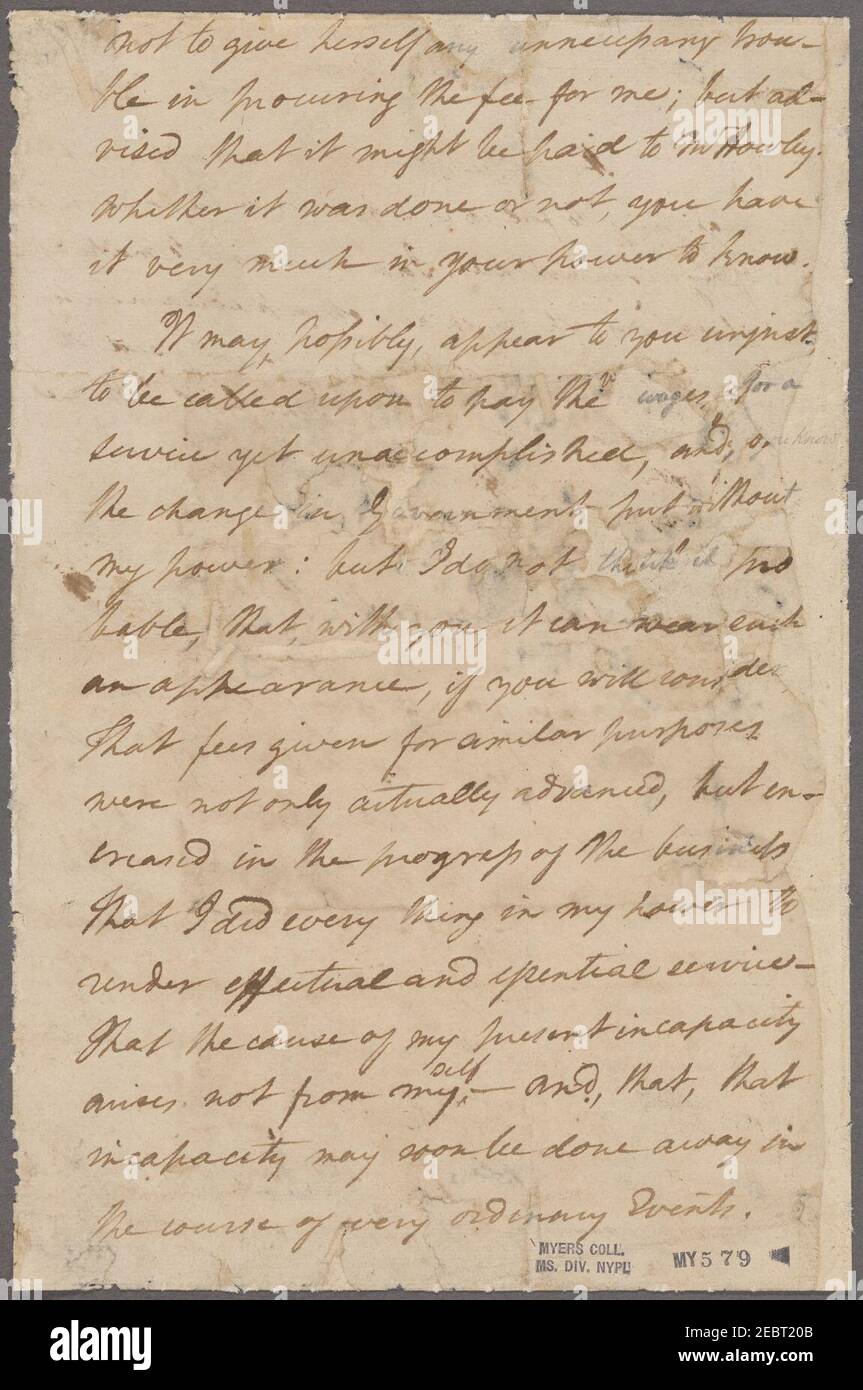 not to give herself any unnecessary trou-
ble in procuring the fee for me; but ad-
vised that it might be paid to Mr Howley.
Whether it was done or not, you have
it very much in your power to know.
It may, possibly, appear to you unjust,
to be called upon to pay the wages for a
service yet unaccomplished, and,
the change in Government put without
my power: but I do not think it pro
bable, that, with you it can wear such
an appearance, if you will consider
That fees given for similar purposes
were not only actually advanced, but en-
creased in the progress of the business
That I did every thing in my power to
render effectual and essential service-
That the cause of my present incapacity
arises not from myself,- and, that, that
incapacity may soon be done away in
the course of very ordinary Events.
MYERS COLL.
MS. DIV. NYPL
MY579
alamy
Image ID: 2EBT20B
www.alamy.com